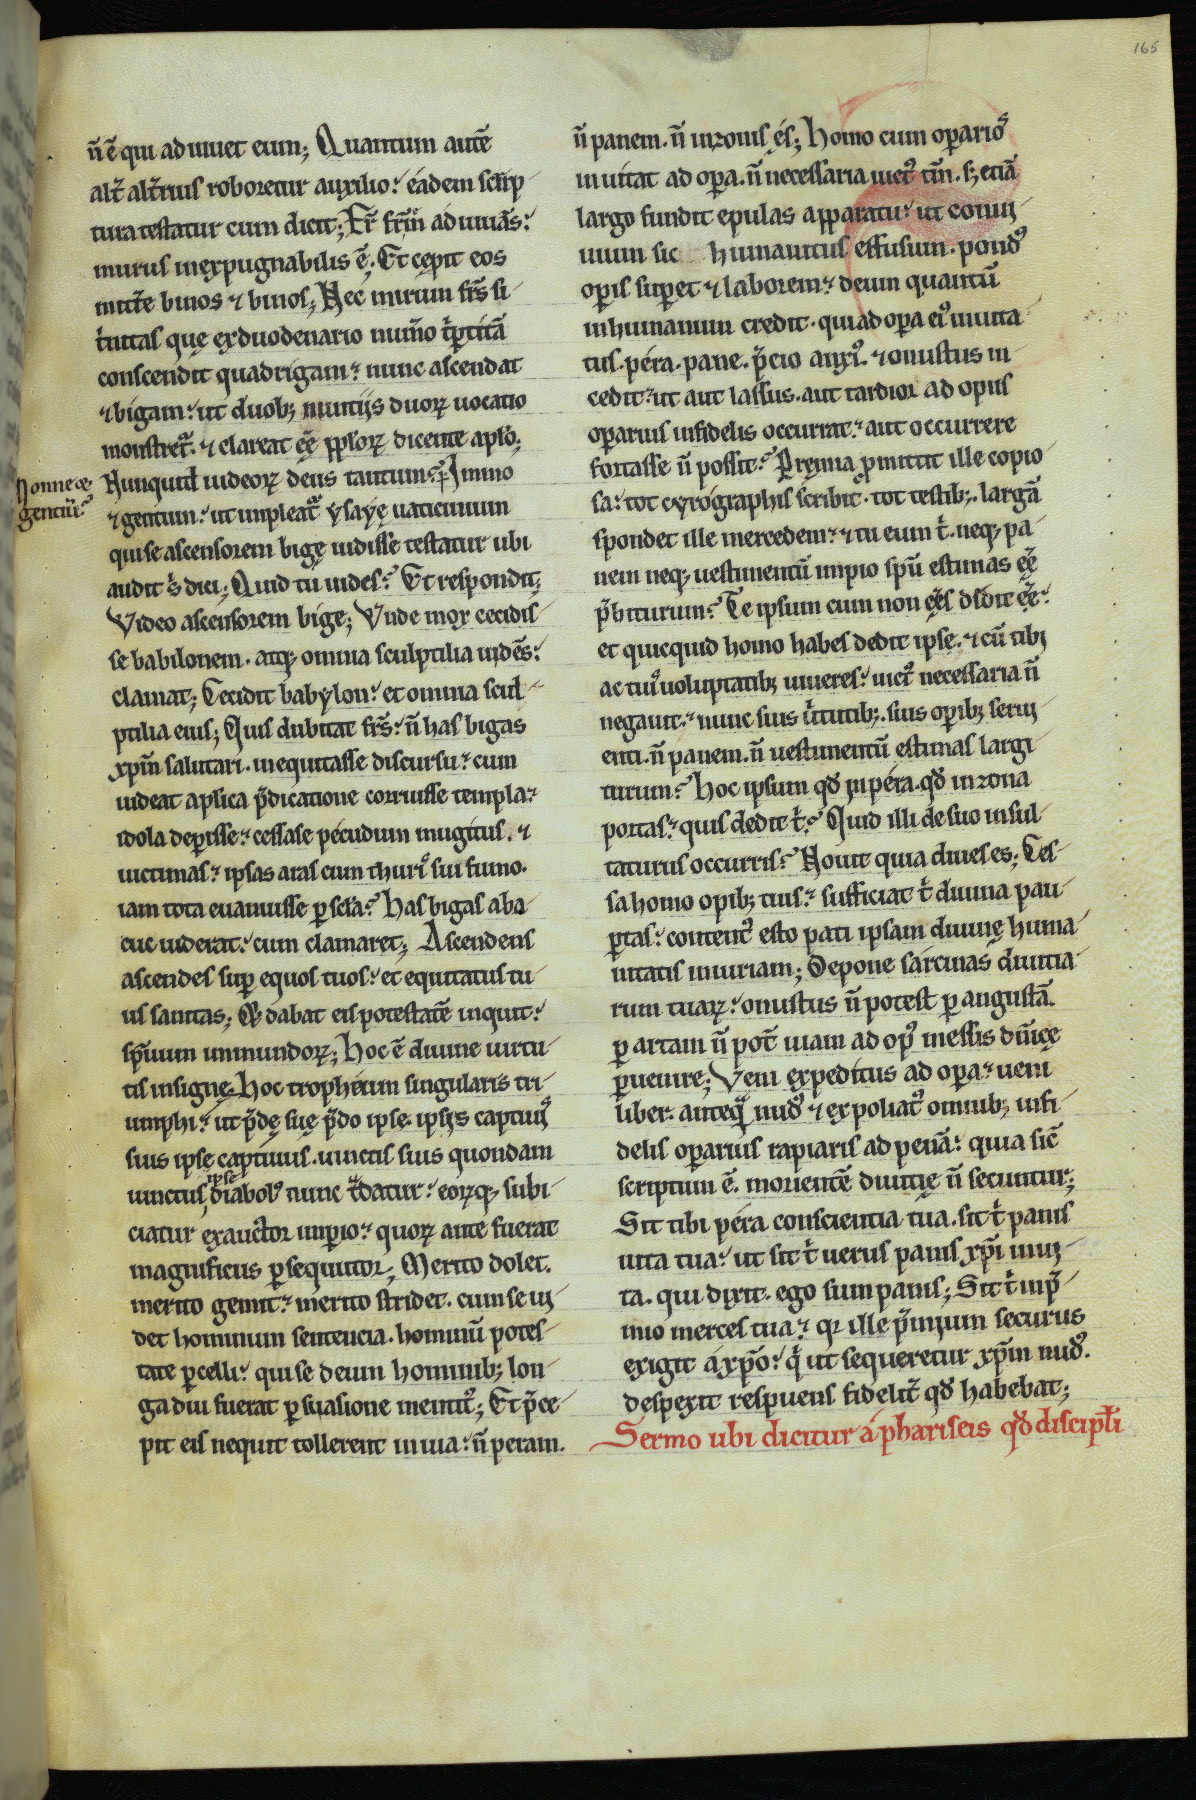 165
n̄ ē qui adiuuet eum; Quantum autē
alt̄ alt̄rius roboretur auxilio: eadem scrip
tura testatur cum dicit; Fr̄ fr̄m adiuuās:
murus inexpugnabilis ē. Et cępit eos
mitt̄e binos ⁊ binos; Nec mirum frs̄ si
t̄nitas quę ex duodenario num̄o q̄ptitā
conscendit quadrigam: nunc ascendat
⁊ bigam: ut duob; nuntijs duoꝝ uocatio
monstret᷑. ⁊ clareat eē ipsoꝝ dicente aplo;
Nonne ⁊
gentiū?
Nunquid iudeoꝝ deus tantum? Immo
⁊ gentium: ut impleat᷑ ysayę uaticinium
qui se ascensorem bigę uidisse testatur ubi
audit s̄ dici; Quid tu uides? Et respondit;
Video ascensorem bigę; Vnde mox cecidis
se babilonem. atq; omnia sculptilia uidēs:
clamat; Cecidit babylon: et omnia scul
ptilia eius; Quis dubitat frs̄: n̄ has bigas
xpm̄ salutari. inequitasse discursu: cum
uideat aplica p̄dicatione corruisse templa:
idola deperisse: cessasse pecudum mugitus. ⁊
uictimas: ipsas aras cum thuris sui fumo.
iam tota euanuisse per scła? Has bigas aba
cuc uiderat: cum clamaret; Ascendens
ascendes sup equos tuos: et equitatus tu
us sanitas; Et dabat eis potestatē inquit:
spirituum inmundoꝝ; Hoc ē diuine uirtu
tis insigne. Hoc tropheum singularis tri
umphi: ut p̄dę suę p̄do ipse. ipsis captiuis
suis ipse captiuus. uinctis suis quondam
ipse
uinctus, diabolus nunc t̄datur: eoꝝq; subi
ciatur exauctor impio: quoꝝ ante fuerat
magnificus ꝑsequutor; Merito dolet.
merito gemit: merito stridet. cum se ui
det hominum sentencia. hominū potes
tate ꝑcelli: qui se deum hominib; lon
ga diu fuerat ꝑsuasione mentit᷑; Et p̄ce
pit eis nequit tollerent in uia: n̄ peram.
n̄ panem. n̄ in zonis ęs; Homo cum operarios
inuitat ad opera. n̄ necessaria uictus tm̄. s; etiā
largo fundit epulas apparatu: ut conui
uium sic humanitus effusum. pondus
operis superet ⁊ laborem: deum quantū
inhumanum credit. qui ad opera eius inuita
tus. pera. pane. p̄cio anxius. ⁊ onustus in
cedit: ut aut lassus. aut tardior ad opus
operarius infidelis occurrat: aut occurrere
fortasse n̄ possit? Pręmia promittit ille copio
sa: tot cyrographis scribit᷑. tot testib;. largā
spondet ille mercedem: ⁊ tu eum t̄. neq; pa
nem neq; uestimentū impio spū estimas eē
p̄biturum? Te ipsum cum non eēs dedit eē:
et quicquid homo habes dedit ipse. ⁊ cū tibi
ac tuis uoluptatib; uiueres: uictus necessaria n̄
negauit: nunc suis uirtutib;. suis operib; serui
enti. n̄ panem. n̄ uestimentū estimas largi
turum? Hoc ipsum qđ in pera. qđ in zona
portas: quis dedit t̄? Quid illi de suo insul
taturus occurris? Nouit quia diues es; Ces
sa homo opib; tuis: sufficiat t̄ diuina pau
ꝑtas: contentus esto pati ipsam diuinę huma
nitatis iniuriam; Depone sarcinas diuitia
rum tuaꝝ: onustus n̄ potest ꝑ angustā.
ꝑ artam n̄ pot̄ uiam ad opus messis dn̄icę
ꝑuenire; Veni expeditus ad opera: ueni
liber. anteq̄ nudus ⁊ expoliatus omnib; infi
delis operarius rapiaris ad penā: quia sic
scriptum ē. morientē diuitię n̄ secuntur;
Sit tibi pera conscientia tua. sit t̄ panis
uita tua: ut sit t̄ uerus panis xp̄i in ui
ta. qui dixit. ego sum panis; Sit t̄ imp̄
mio merces tua: qr ille p̄mium securus
exigit a xp̄o: q̄ ut sequeretur xpm̄ nudus.
despexit respuens fidelit̄ qđ habebat;
Sermo ubi dicitur a phariseis qđ discipłi